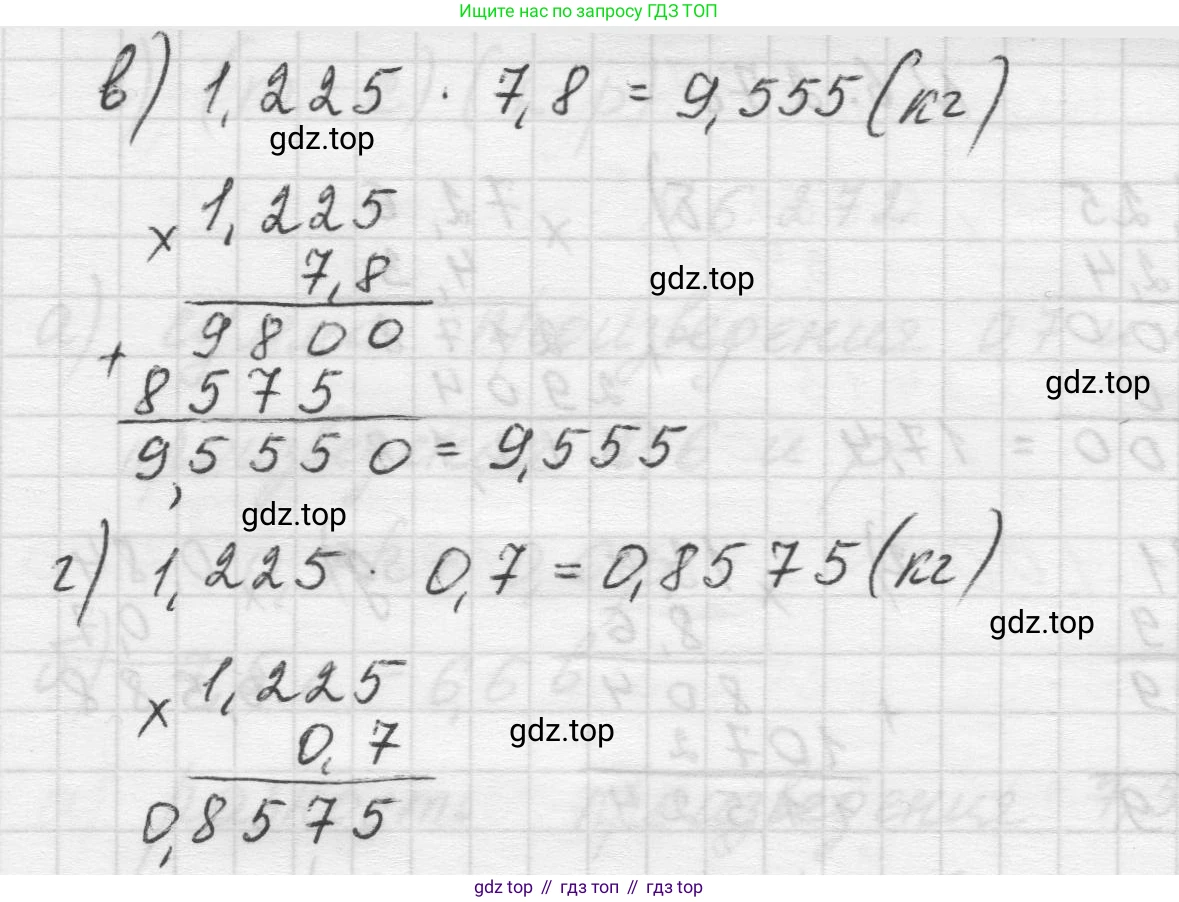 Ищите нас по запросу ГДЗ ТОП
в) 1,225 · 7,8 = 9,555 (кг)
gdz.top
× 1,225
7,8
gdz.top
9800
+ 8575
gdz.top
9,5550 = 9,555
gdz.top
г) 1,225 · 0,7 = 0,8575 (кг)
gdz.top
× 1,225
0,7
gdz.top
0,8575
gdz top // гдз топ // гдз top